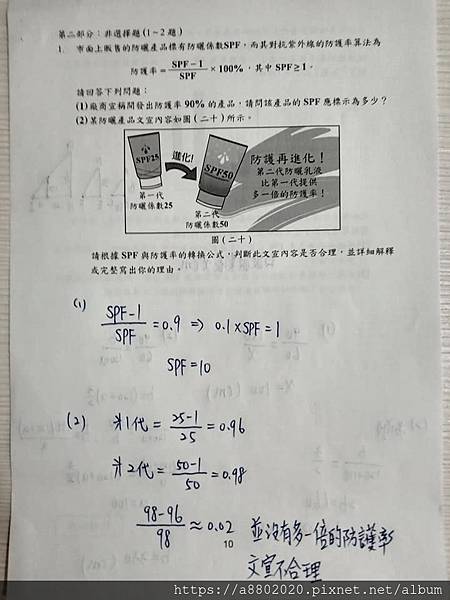 第二部分：非選擇題(1～2題)
1. 市面上販售的防曬產品標有防曬係數SPF，而其對抗紫外線的防護率算法為
防護率＝SPF－1/SPF×100%，其中SPF≥1。
請回答下列問題：
(1)廠商宣稱開發出防護率90%的產品，請問該產品的SPF應標示為多少？
(2)某防曬產品文宣內容如圖(二十)所示。
SPF25
進化!
SPF50
防護再進化！
第二代防曬乳液
比第一代提供
多一倍的防護率！
第一代
防曬係數25
第二代
防曬係數50
圖(二十)
請根據SPF與防護率的轉換公式，判斷此文宣內容是否合理，並詳細解釋
或完整寫出你的理由。
(1) SPF-1/SPF = 0.9 ⇒ 0.1×SPF = 1
SPF = 10
(2) 第1代 = 25-1/25 = 0.96
第2代 = 50-1/50 = 0.98
98-96/98 ≈ 0.02 並沒有多一倍的防護率
文宣不合理
10
https://a8802020.pixnet.net/album